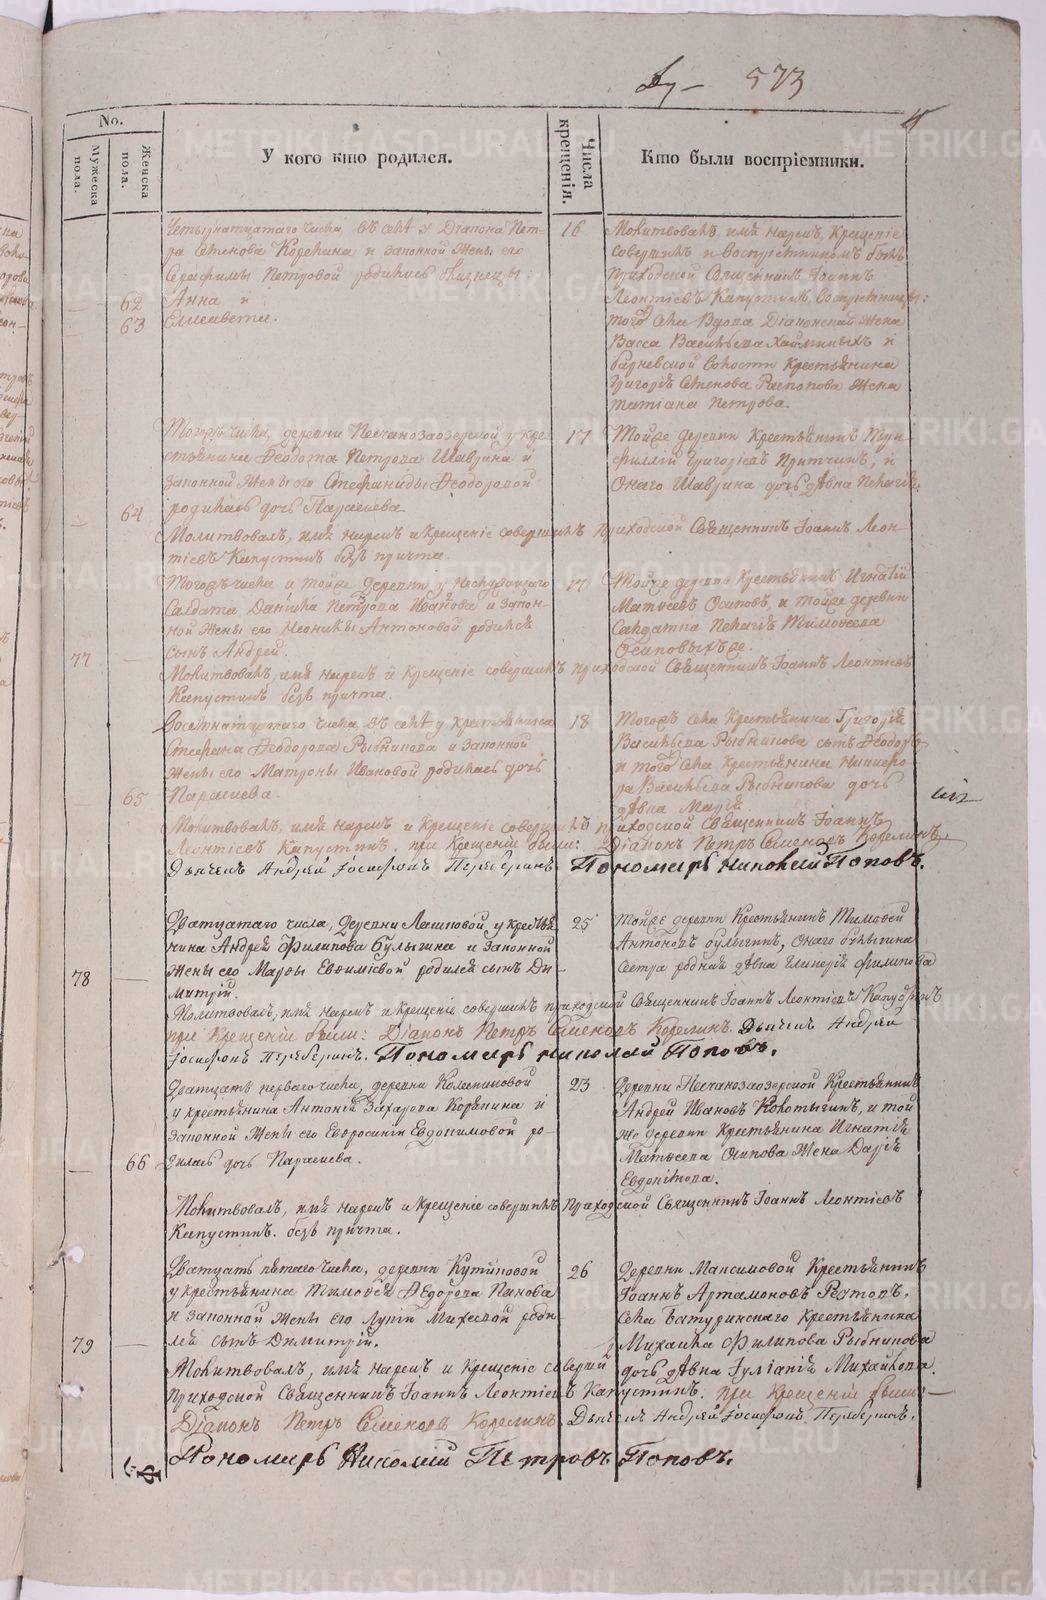 573
No.
Мужеска пола.
Женска пола.
У кого кто родился.
Числа крещенія.
Кто были воспріемники.
Четырнатцатаго числа, въ селѣ у Діакона Пет-
ра Семенова Корелина и законной Жены его
Серафимы Петровой родились близнецы:
62 Анна и
63 Елисавета.
16
Молитвовалъ, имя нарекъ, Крещеніе
совершилъ и воспріемникомъ былъ
приходской Священникъ Іоаннъ
Леонтіевъ Капустинъ. Воспріемницы:
того Села Вдова Діаконская Жена
Васса Васильева
волости Крестьянина
Григорія Семенова Распопова Жена
Татіана Петрова.
Тогожъ числа, деревни Песчанозаозерской у кре-
стьянина Ѳеодота Петрова Шаврина и
законной Жены его Стефаниды Ѳеодоровой
64 родилась дочь Параскева.
17
Тойже деревни Крестьянинъ
Григорьевъ и
Онаго Шаврина дочь дѣвка Пелагія.
Молитвовалъ, имя нарекъ и Крещеніе совершилъ приходской Священникъ Іоаннъ Леон-
тіевъ Капустинъ безъ причта.
Тогожъ числа и тойже деревни у
Салдата Данила Петрова Иванова и закон-
ной Жены его Неонилы Антоновой родился
77 — сынъ Андрей.
17
Тойже деревни Крестьянинъ Игнатій
Матѳеевъ Осиповъ, и тойже деревни
Салдатка Пелагія Тимоѳеева
Молитвовалъ, имя нарекъ и Крещеніе совершилъ приходской Священникъ Іоаннъ Леонтіевъ
Капустинъ безъ причта.
Восемнатцатаго числа, въ селѣ у крестьянина
Стефана Ѳеодорова Рыбникова и законной
Жены его Матроны Ивановой родилась дочь
65 Параскева.
18
Тогожъ села Крестьянина Григорія
Васильева Рыбникова сынъ Ѳеодоръ
и того села Крестьянина Никифо-
ра Васильева Рыбникова дочь
дѣвка Марія.
Молитвовалъ, имя нарекъ и Крещеніе совершилъ приходской Священникъ Іоаннъ
Леонтіевъ Капустинъ. при Крещеніи были: Діаконъ Петръ Семеновъ Корелинъ,
Дьячекъ Андрей Пономарь Николай Поповъ.
Дватцатаго числа, деревни у крестья-
нина Андрея Филипова Булыгина и законной
Жены его Марѳы Евѳиміевой родился сынъ Ди-
78 — митрій.
25
Тойже деревни Крестьянинъ Тимоѳей
Антоновъ Булыгинъ, онаго Булыгина
сестра родная дѣвка Гликерія Филипова
Молитвовалъ, имя нарекъ и Крещеніе совершилъ приходской Священникъ Іоаннъ Леонтіевъ Капустинъ
при Крещеніи были: Діаконъ Петръ Семеновъ Корелинъ. Дьячекъ Андрей
Пономарь николай Поповъ.
Дватцать перваго числа, деревни
у крестьянина Антонія Захарова Корякина и
законной Жены его Евфросиніи Евдокимовой ро-
66 дилась дочь Параскева.
23
Деревни Песчанозаозерской Крестьянинъ
Андрей Ивановъ и той
же деревни Крестьянина Игнатія
Матѳеева Осипова Жена Дарія
Евдокимова.
Молитвовалъ, имя нарекъ и Крещеніе совершилъ Приходской Священникъ Іоаннъ Леонтіевъ
Капустинъ. безъ причта.
Дватцать пятаго числа, деревни
у Крестьянина Тимоѳея Ѳедорова Панова
и законной Жены его Михеевой роди-
79 — лся сынъ Димитрій.
26
Деревни Максимовой Крестьянинъ
Іоаннъ Артамоновъ
села Батуринскаго Крестьянина
Михаила Филипова Рыбникова
дочь дѣвка Іуліанія Михайлова.
Молитвовалъ, имя нарекъ и Крещеніе совершилъ
Приходской Священникъ Іоаннъ Леонтіевъ Капустинъ. при Крещеніи были:
Діаконъ Петръ Семеновъ Корелинъ. Дьячекъ Андрей
Пономарь Николай Петровъ Поповъ.
METRIKI.GASO-URAL.RU